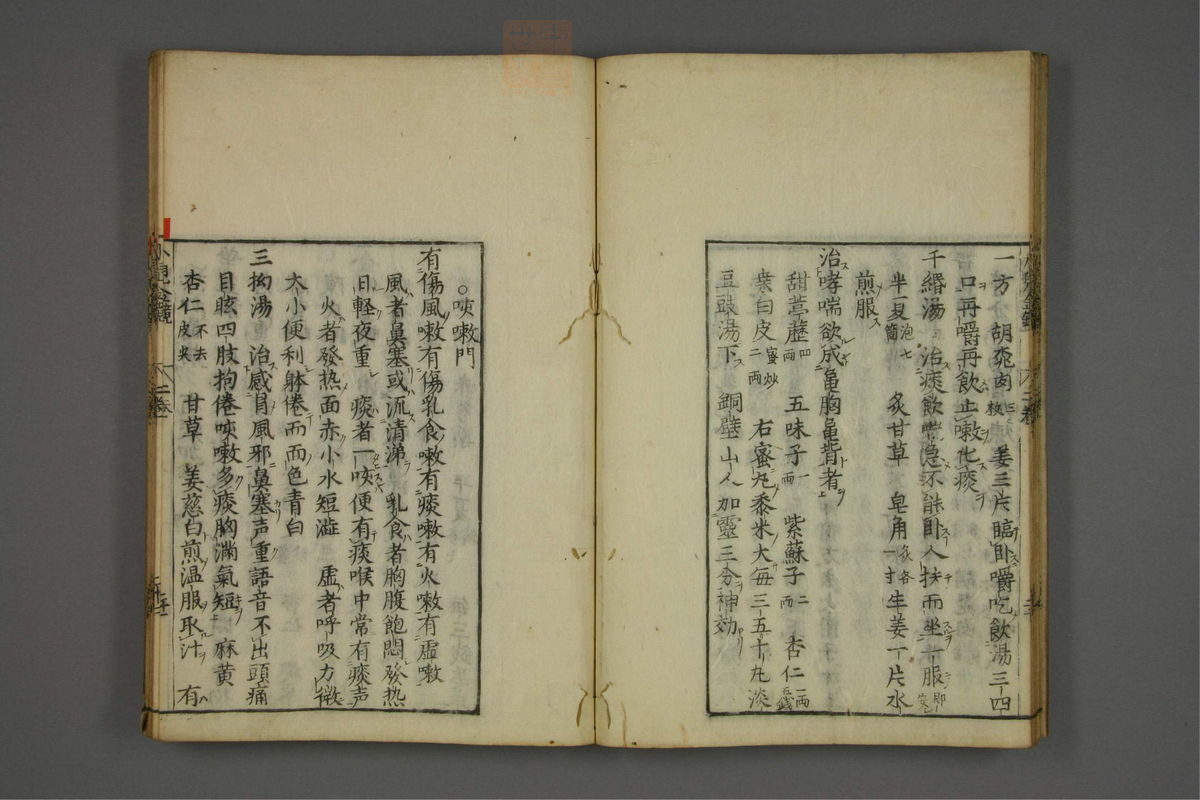 一方 胡桃肉三枚 姜三片臨卧嚼吃飲湯三四
口再嚼再飲止嗽化痰
千緡湯 治痰飲喘急不能卧人扶而坐一服即安
半夏泡七箇 炙甘草 皂角炙各一寸生姜一片水
煎服
治哮喘欲成亀胸亀背者
甜葶藶四兩 五味子一兩 紫蘇子二兩 杏仁一兩五錢
桒白皮蜜炒二兩 右蜜丸黍米大毎三五十丸淡
豆豉湯下 銅壁山人加靈三分神効
○咳嗽門
有傷風嗽有傷乳食嗽有痰嗽有火嗽有虚嗽
風者鼻塞或流清涕 乳食者胸腹飽悶發热
日軽夜重 痰者一咳便有痰喉中常有痰声
火者發热面赤小水短澁 虚者呼吸方微
大小便利躰倦而面色青白
三拗湯 治感冒風邪鼻塞声重語音不出頭痛
目眩四肢拘倦咳嗽多痰胸滿氣短 麻黄
杏仁不去皮尖 甘草 姜慈白煎温服取汁 有